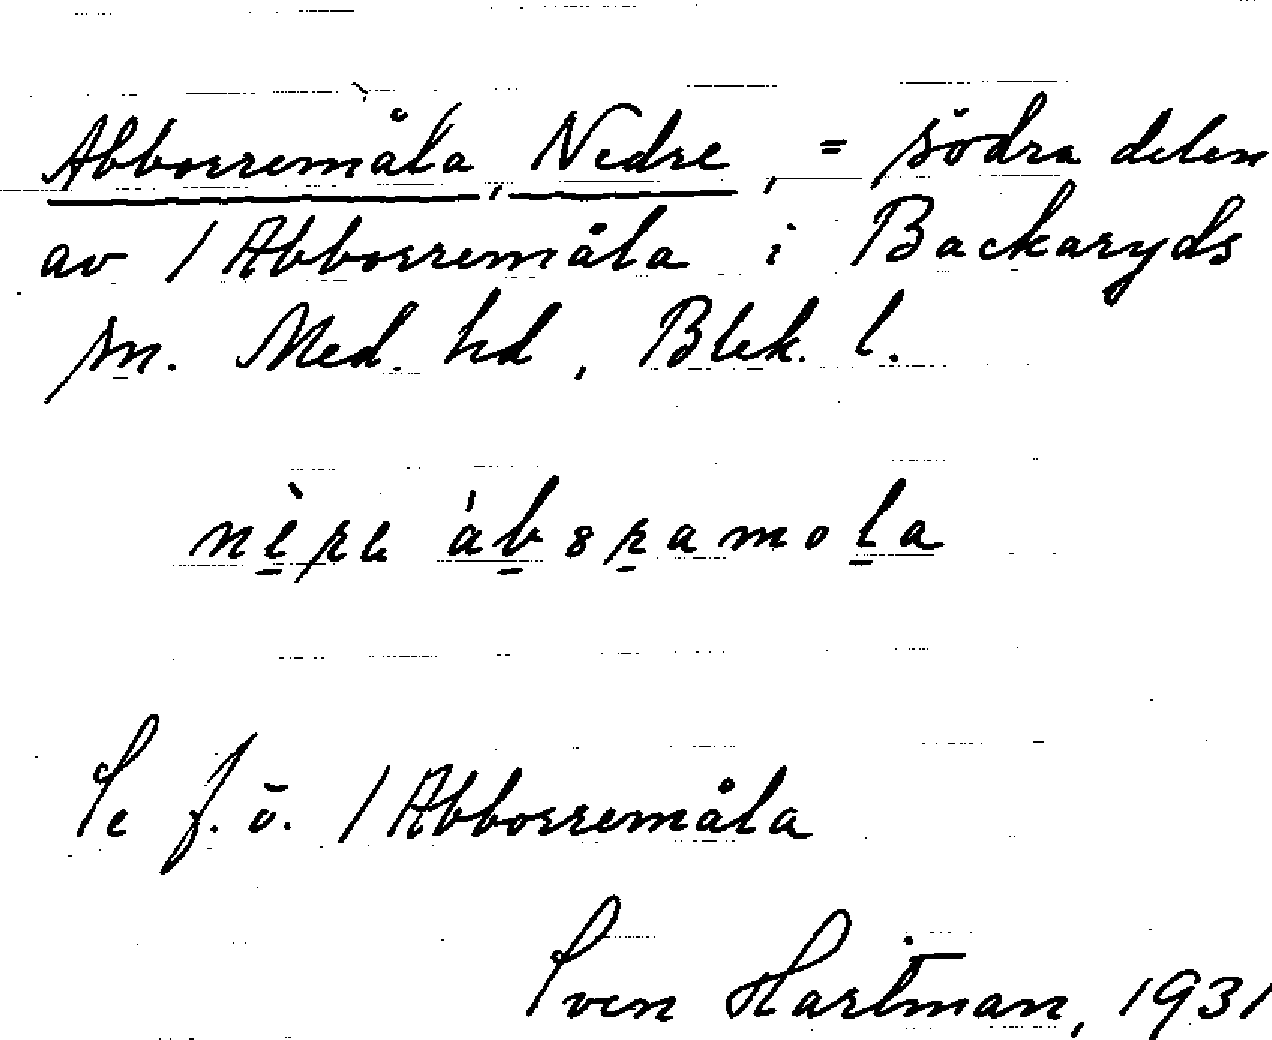 Abborremåla, Nedre, = södra delen
av / Abborremåla i Backaryds
sn. Med. hd, Blek. l.
nè̱re áḇɜṟamoḻa
Se f. ö. / Abborremåla
Sven Hartman, 1931